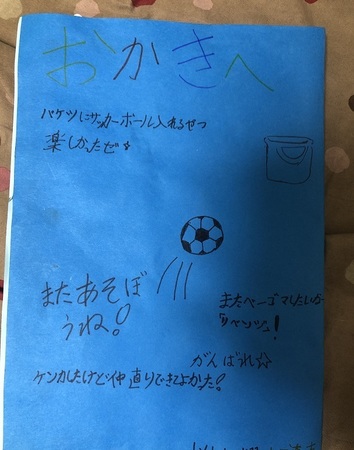 おかきへ
バケツにサッカーボール入れるせつ
楽しかったぜ☆
またあそぼ
うね!
またベーゴマしたいな
「リベンジ」!
がんばれ☆
ケンカしたけど仲直りできてよかった!